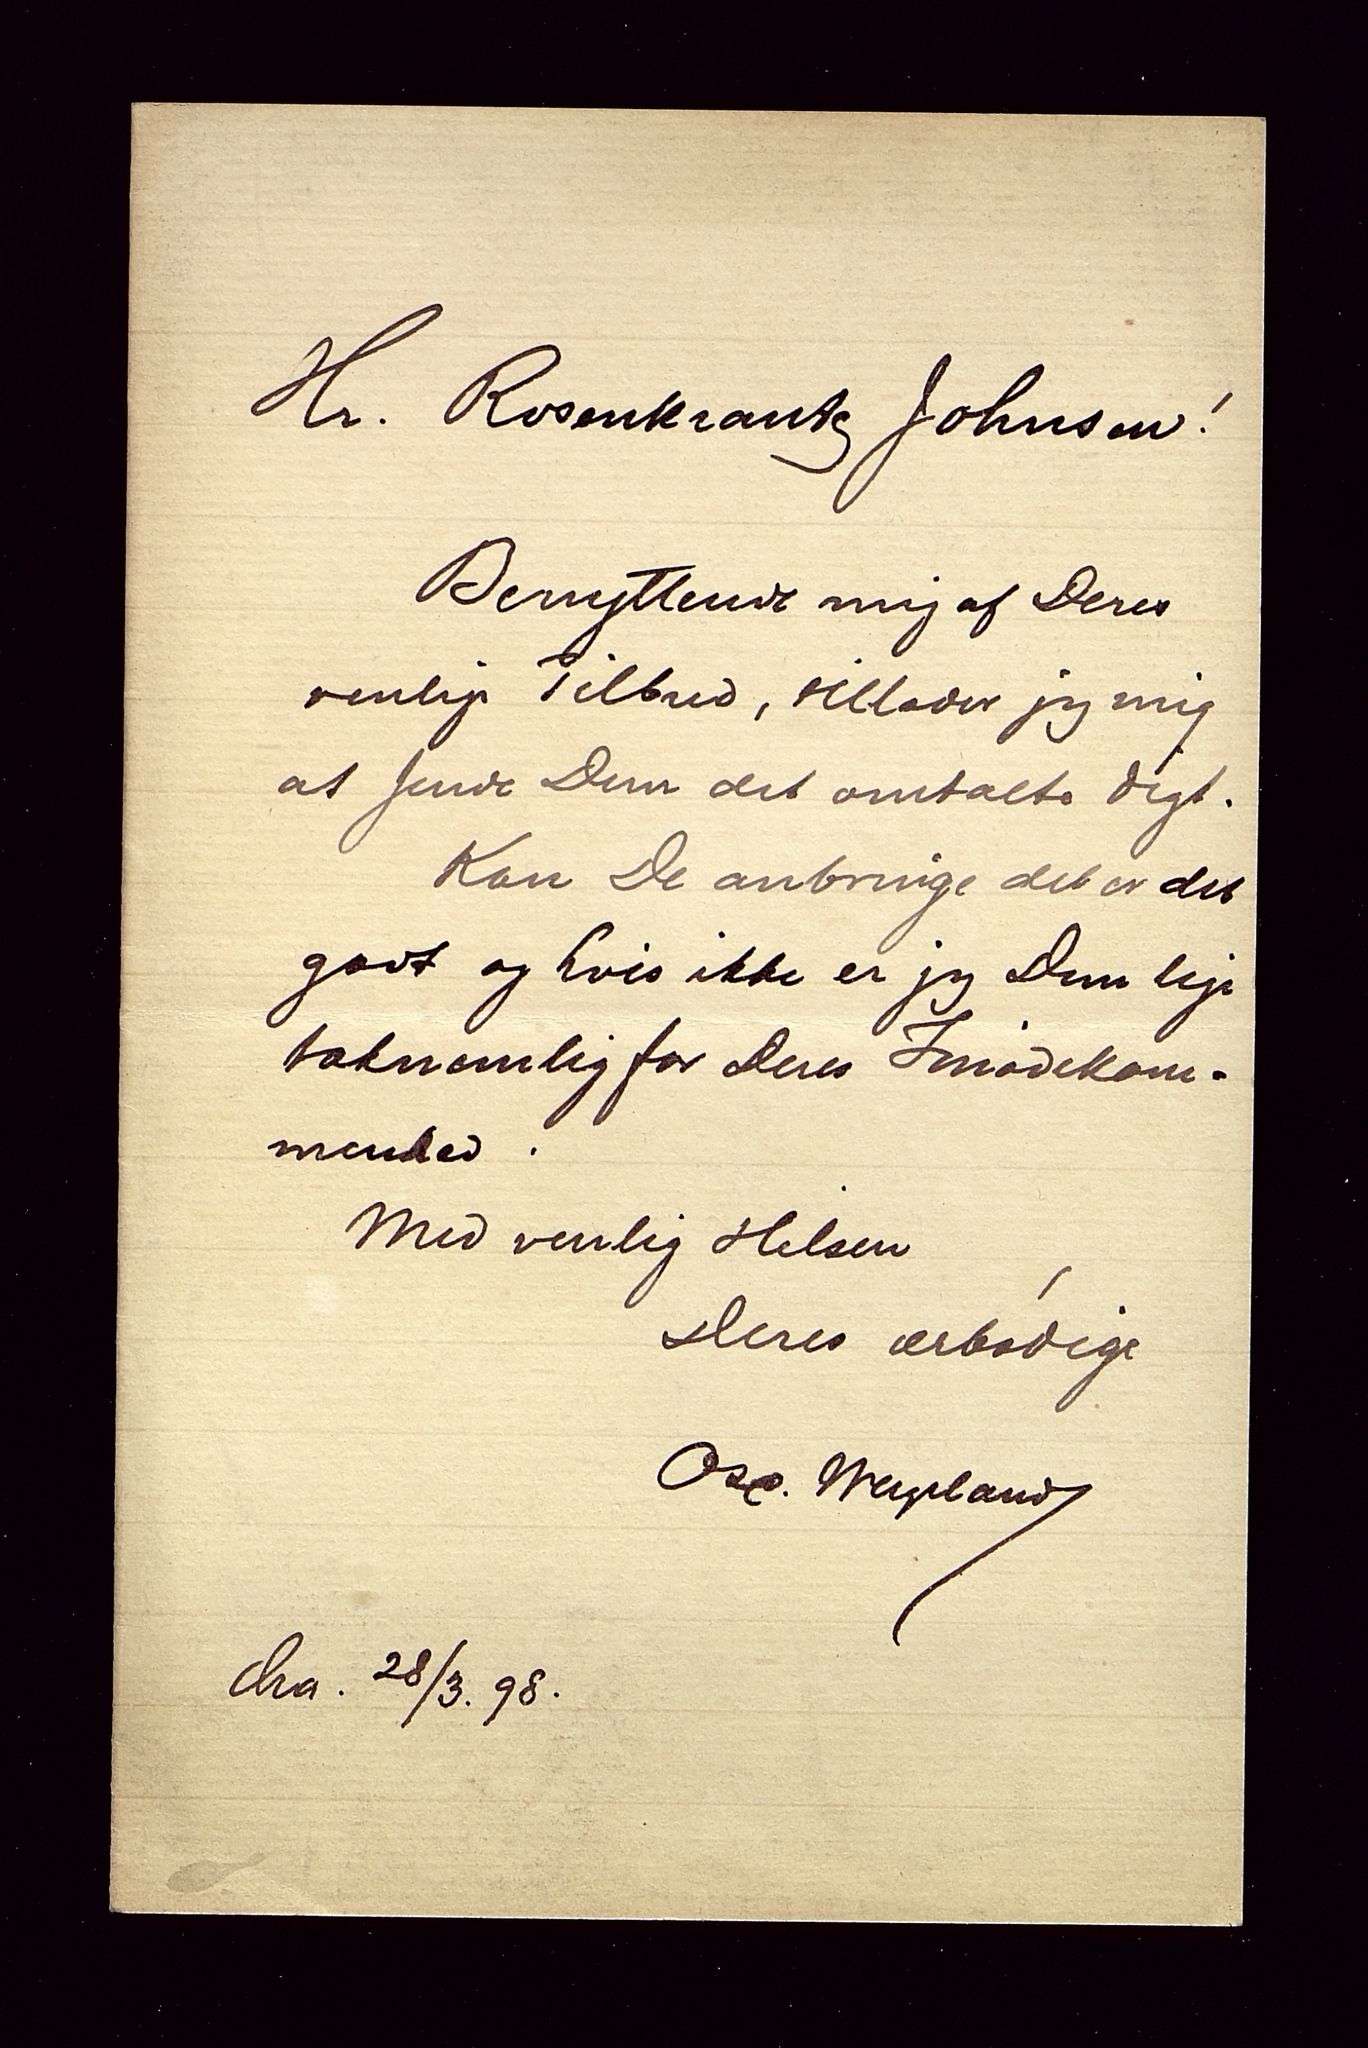 Hr. Rosenkrantz Johnsen!
Benyttende mig af Deres
venlige Tilbud, tillader jeg mig
at sende Dem det omtalte Digt.
Kan De anbringe det er det
godt og hvis ikke er jeg Dem lige
taknemlig for Deres Imødekom-
menhed.
Med venlig Hilsen
Deres ærbødige
Osc. Weyeland
Chra. 28/3. 98.